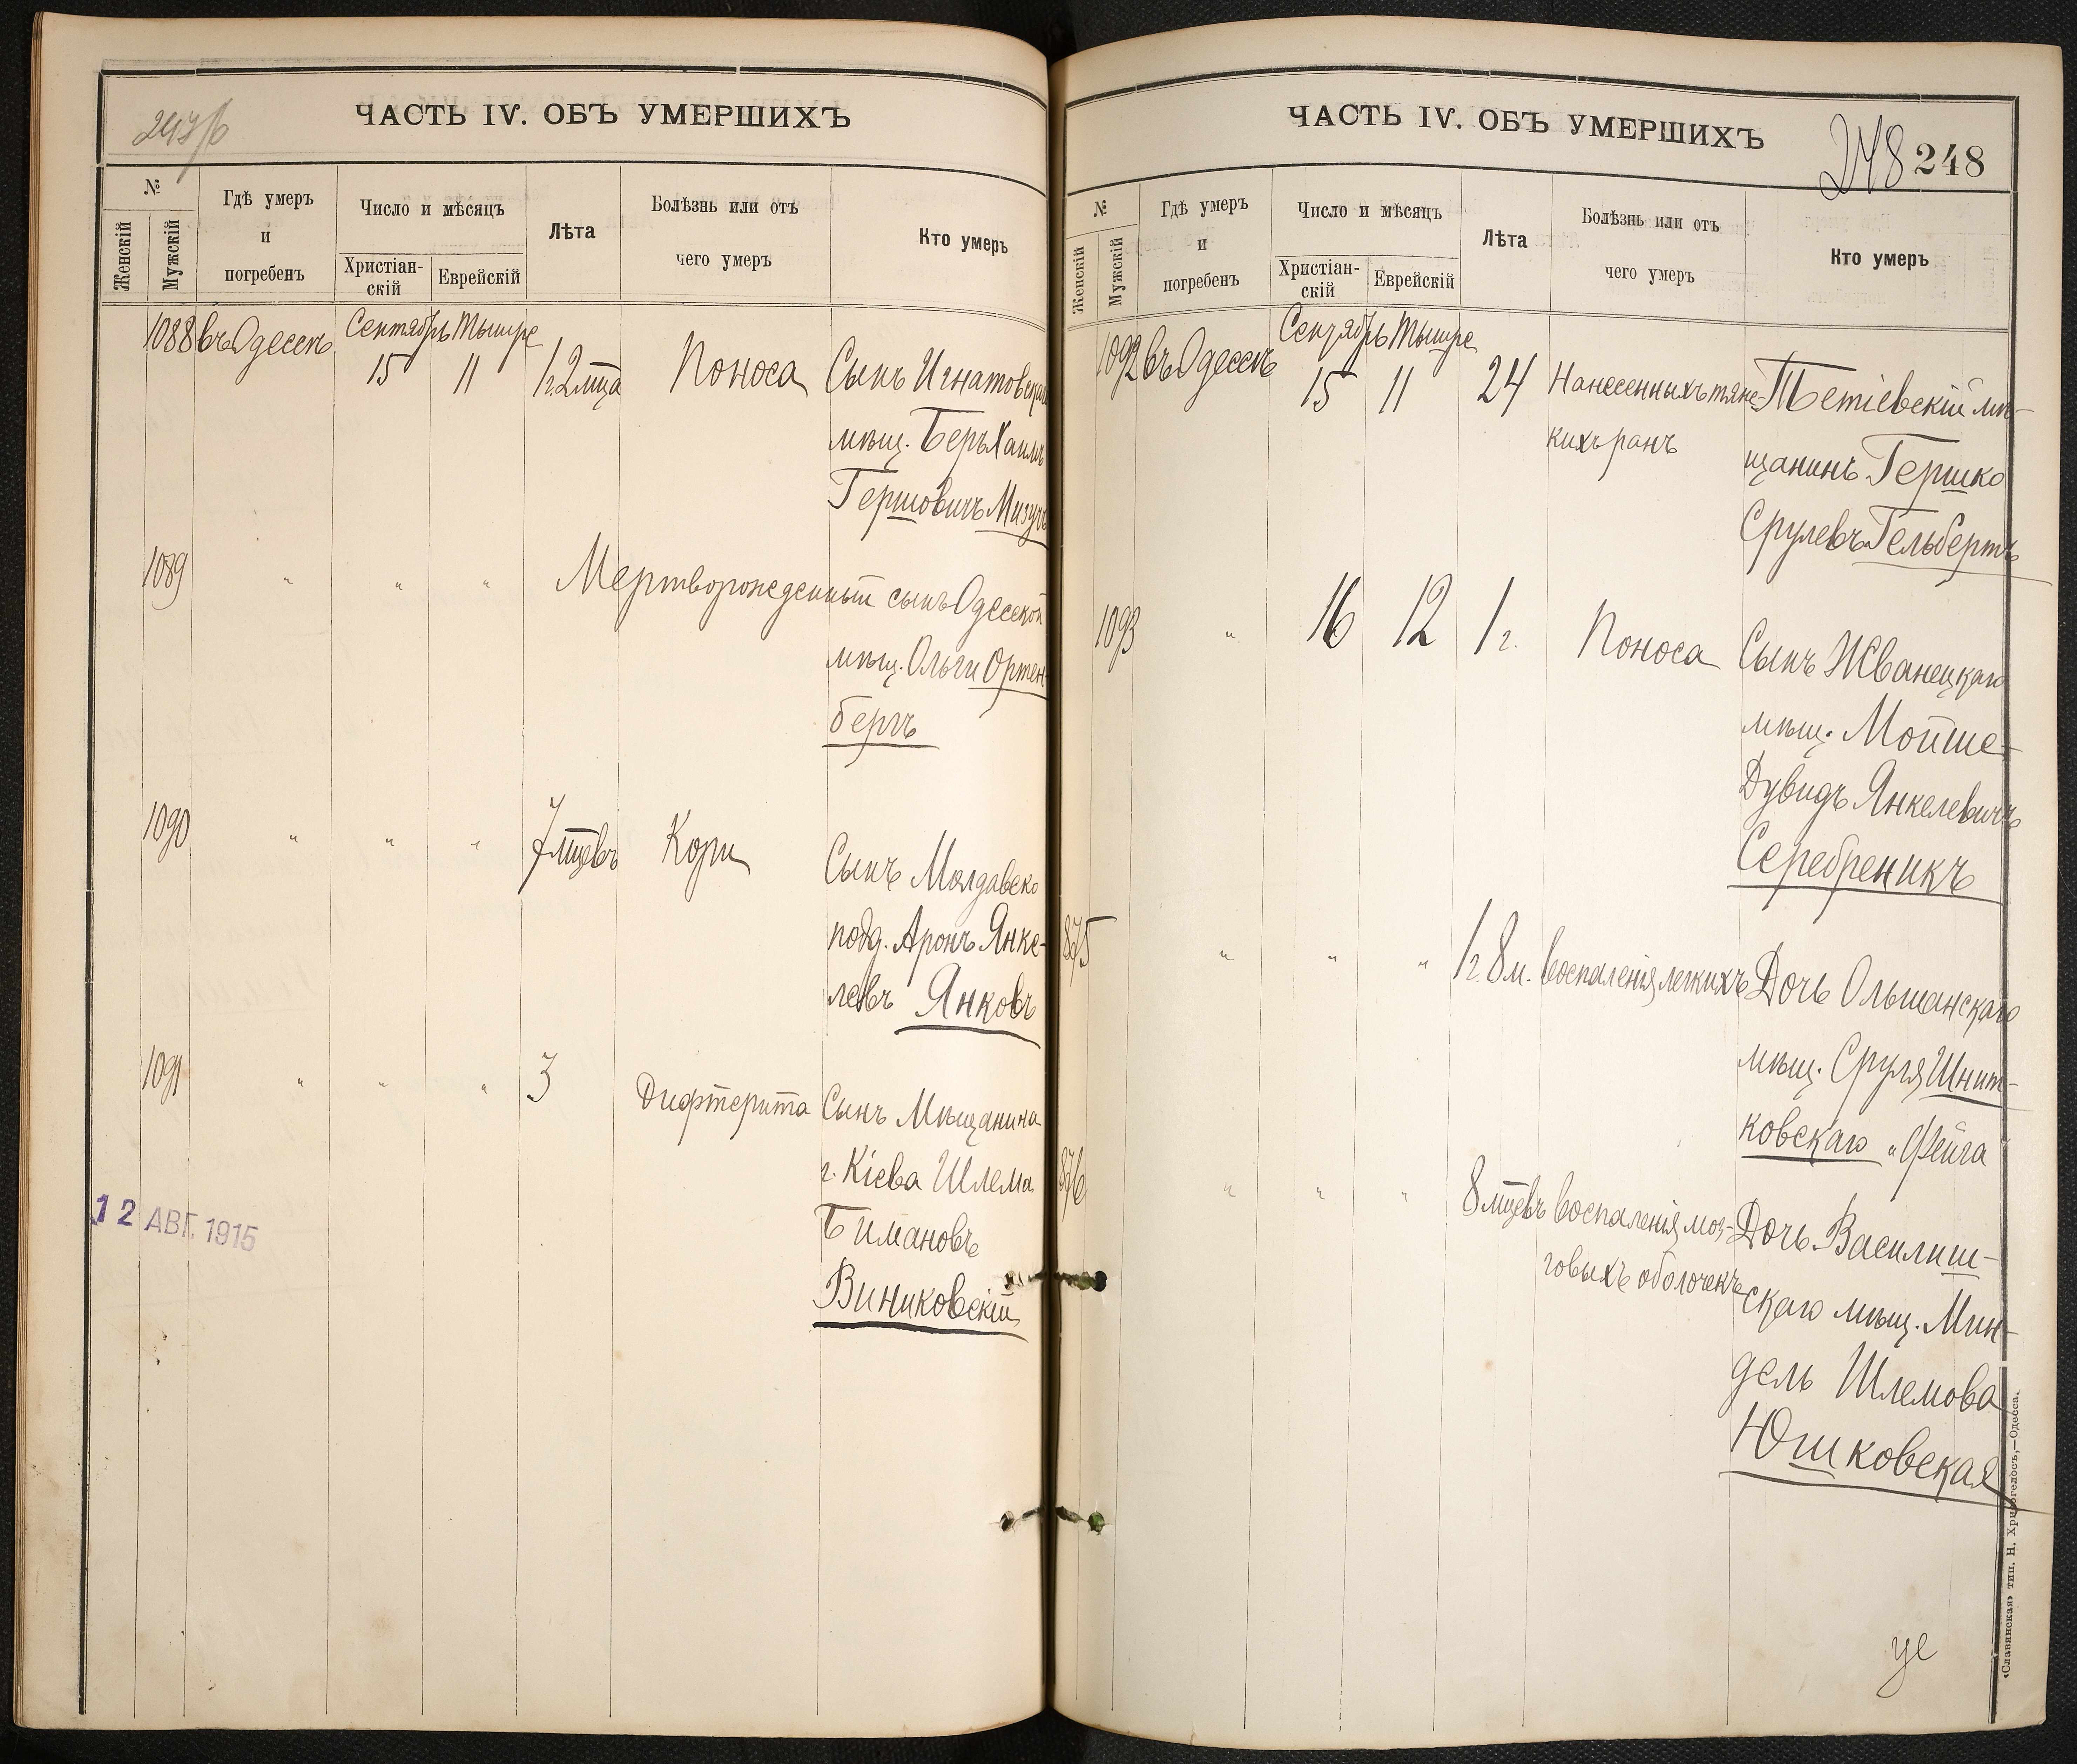 247/б
ЧАСТЬ IV. ОБЪ УМЕРШИХЪ
№
Женскій
Мужскій
Гдѣ умеръ
и
погребенъ
Число и мѣсяцъ
Христіан-
скій
Еврейскій
Лѣта
Болѣзнь или отъ
чего умеръ
Кто умеръ
1088 въ Одессѣ Сентябрь Тышре
15 11 1 г. 2 мѣца Поноса Сынъ Игнатовскій
мѣщ. Беръ Хаимъ
Гершовичъ Мизучъ
1089 " " " Мертворожденный сынъ Одесской
мѣщ. Ольги Ортен-
бергъ
1090 " " " 7 мѣцевъ Кори Сынъ Молдавско
подд. Аронъ Янке-
левъ Янковъ
1091 " " " 3 Дифтерита Сынъ Мѣщанина
г. Кіева Шлема
Бимановъ
Виниковскій
12 АВГ. 1915
ЧАСТЬ IV. ОБЪ УМЕРШИХЪ
248 248
№
Женскій
Мужскій
Гдѣ умеръ
и
погребенъ
Число и мѣсяцъ
Христіан-
скій
Еврейскій
Лѣта
Болѣзнь или отъ
чего умеръ
Кто умеръ
1092 въ Одессѣ Сентябрь Тышре
15 11 24 Нанесенныхъ тяже- Тетіевскій мѣ-
кихъ ранъ щанинъ Гершко
Срулевъ Гельбертъ
1093 " 16 12 1 г. Поноса Сынъ Жванецкаго
мѣщ. Мойше-
Дувидъ Янкелевичъ
Серебреникъ
875 " " " 1 г. 8 м. воспаленія легкихъ Дочь Ольшанскаго
мѣщ. Сруля Шнит-
ковскаго "Фейга
876 " " " 8 мѣцевъ воспаленія моз- Дочь Василиш-
говыхъ оболочекъ скаго мѣщ. Мин-
дель Шлемова
Юшковская
«Славянская» тип. Н. Хрисогелосъ,—Одесса.